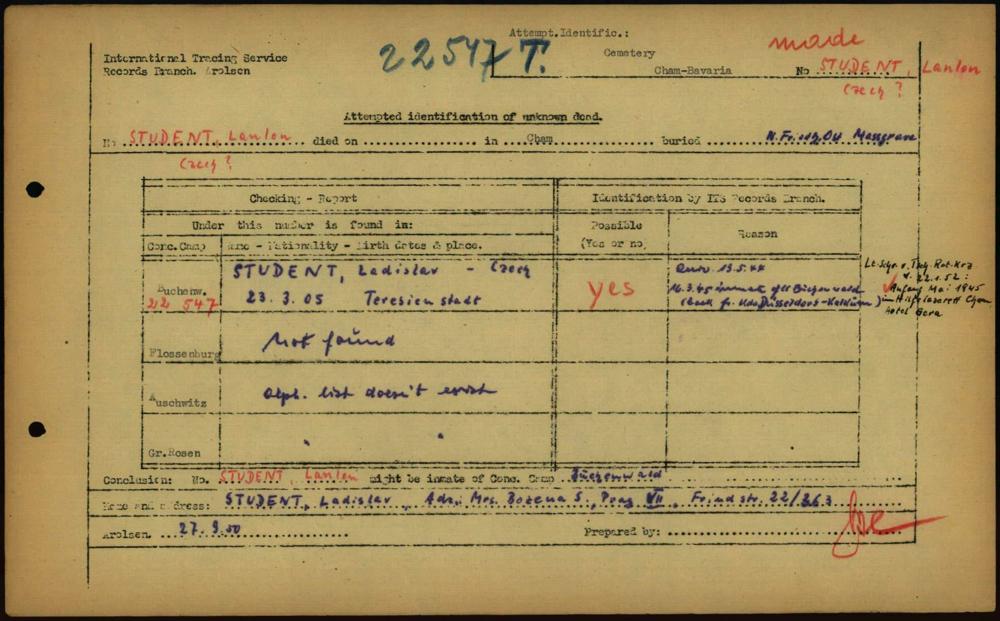 International Tracing Service
Records Branch. Arolsen
22547 T.
Attempt.Identific.:
Cemetery
Cham-Bavaria
made
No STUDENT, Lanlon
Czech ?
Attempted identification of unknown dead.
No STUDENT, Lanlon died on ........ in ...Cham... buried ........ Massgrave
Czech ?
Checking - Report
Identification by ITS Records Branch.
Under this number is found in:
Possible
(Yes or no)
Reason
Conc.Camp
Name - Nationality - Birth dates & place.
Buchenw.
22 547
STUDENT, Ladislav - Czech
23.3.05 Teresienstadt
yes
13.5.44
16.3.45
v. Tsch. Rot. Krz
v. 22.1.52 :
Anfang Mai 1945
im Hilfslazarett Cham
Hotel Gera
Flossenburg
Not found
Auschwitz
Alph. list doesn't exist
Gr.Rosen
" "
Conclusion: No. STUDENT, Lanlon might be inmate of Conc. Camp Buchenwald
Name and address: STUDENT, Ladislav, Adr.: Mrs. Bozena S., Prag VII, 22/363
Arolsen. 27.9.50
Prepared by: